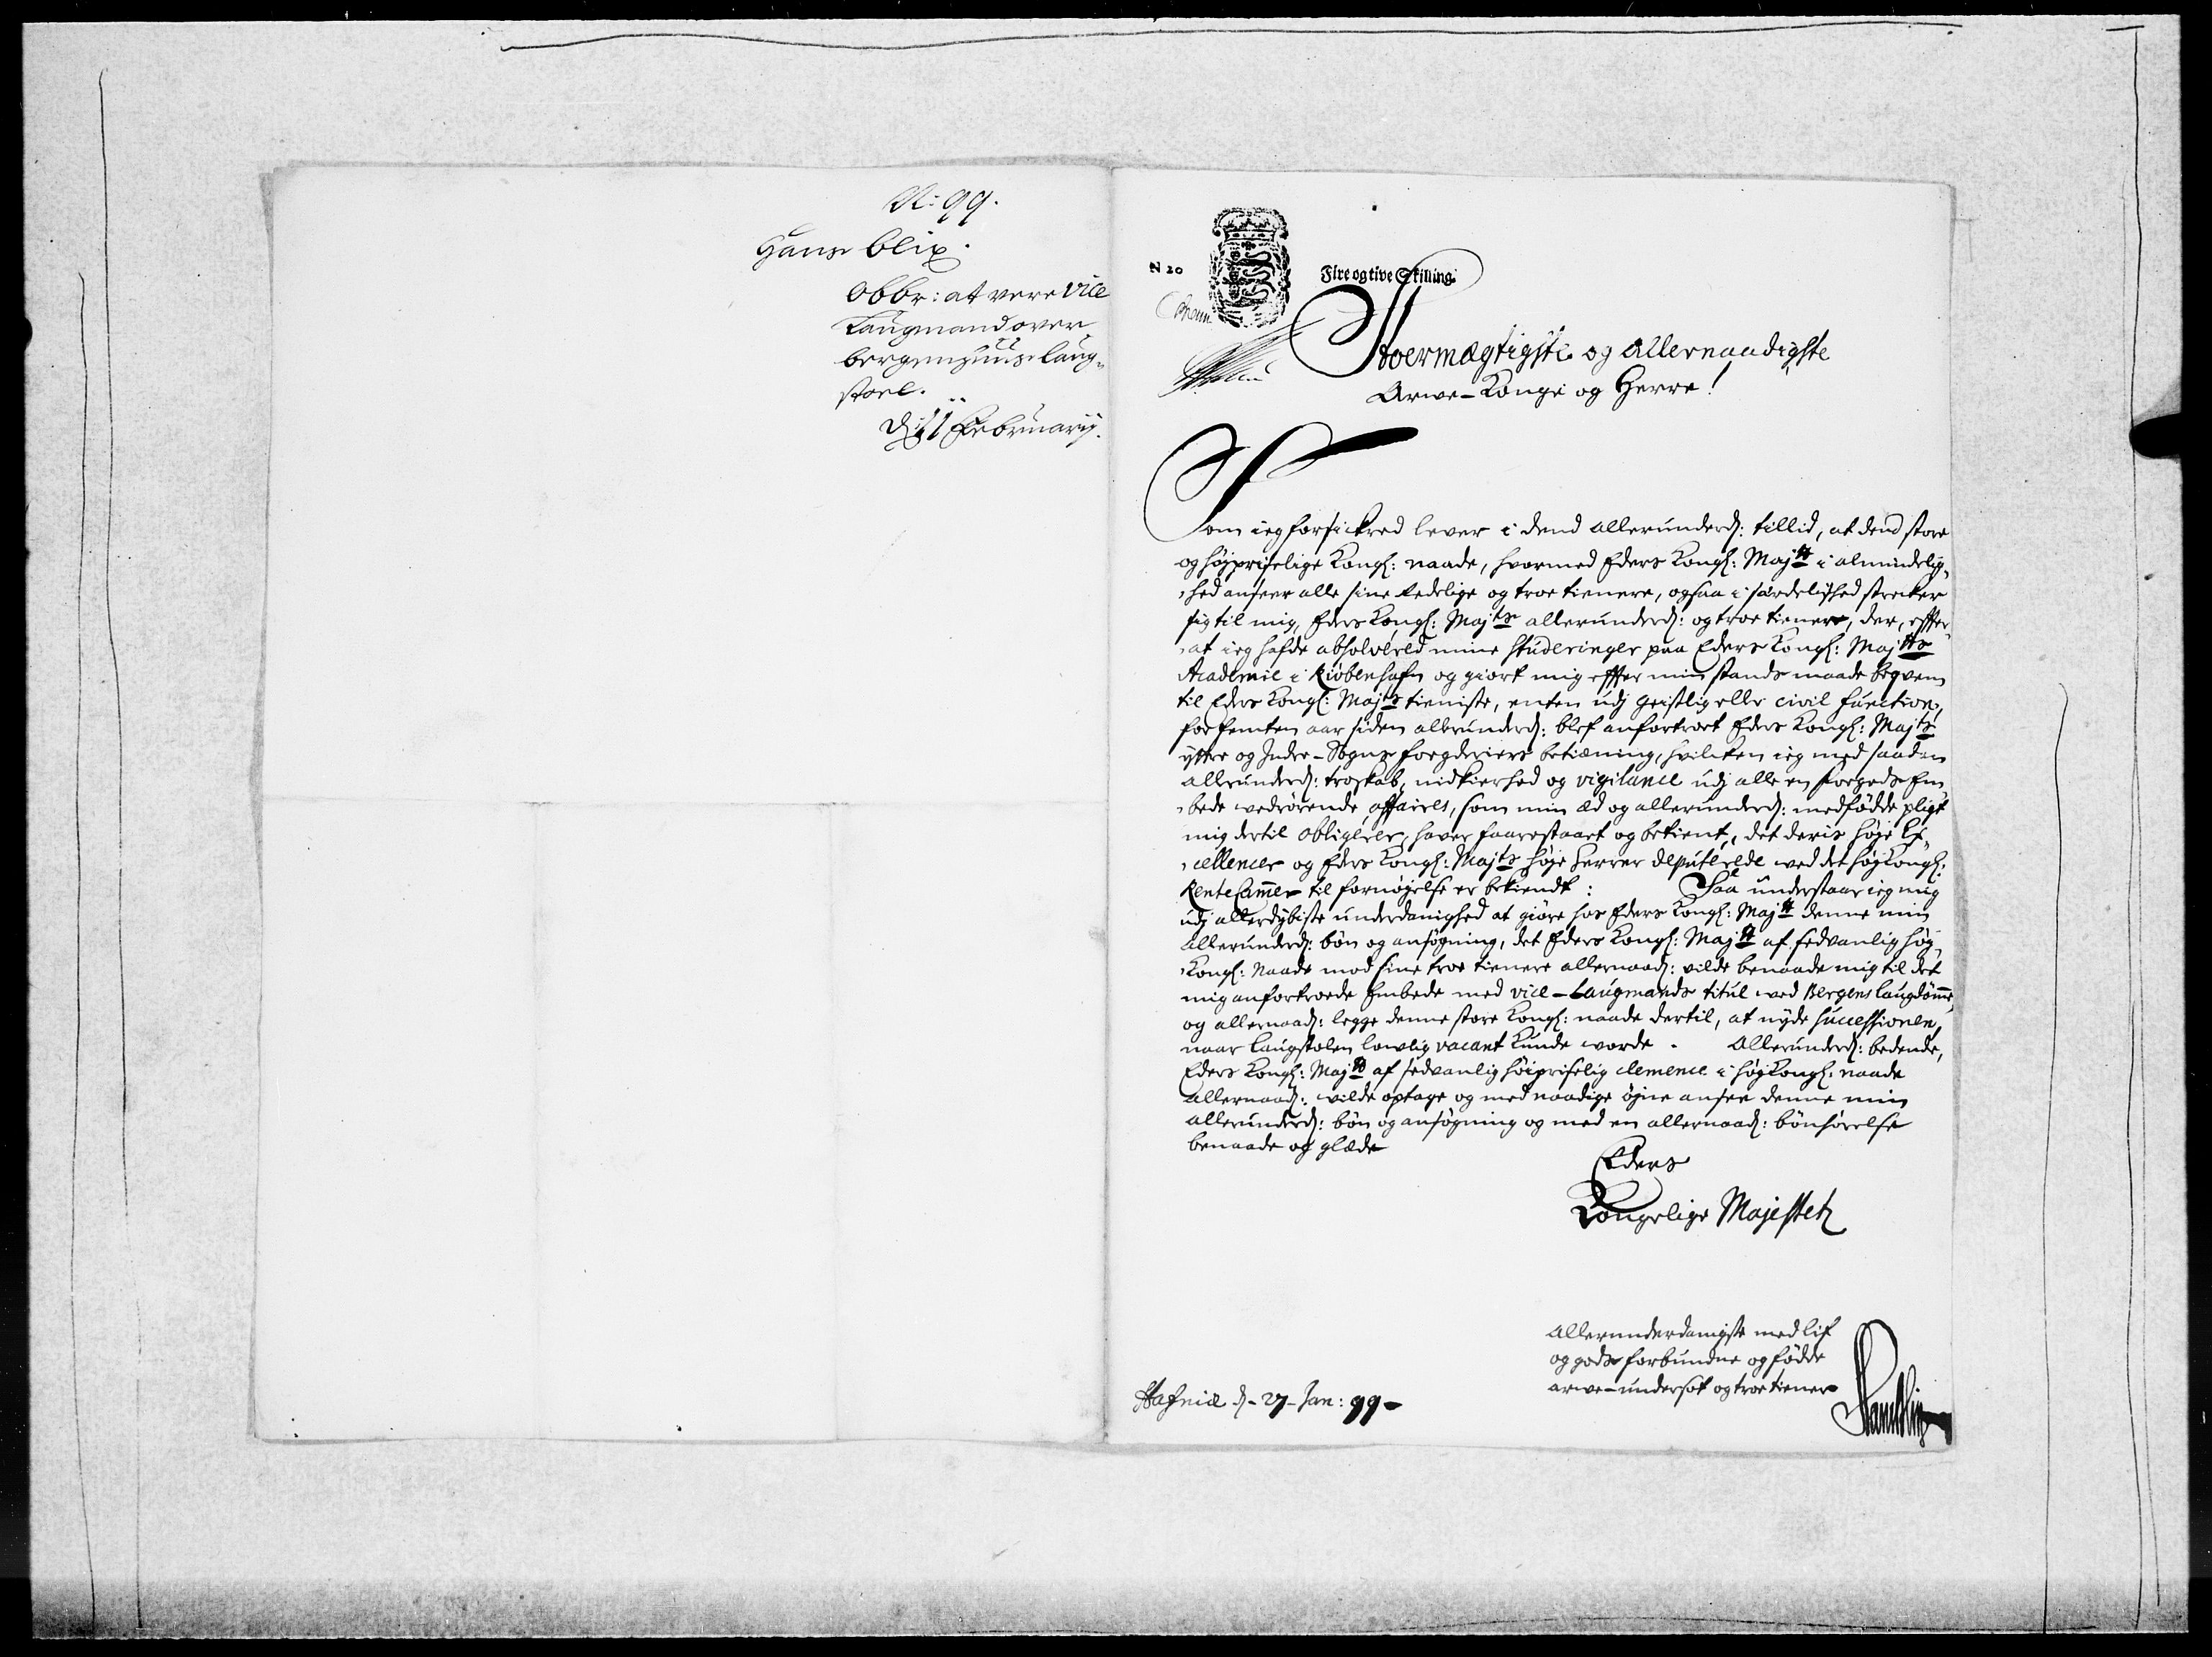 N: 99.
Hans blix.
Obbr: at vere vice
Laugmand over
bergenhuus laug„
stoel.
d: 11 Februarij.
N 20
Fire og tive Skilling
Stoermægtigste og Allernaadigste
Arwe-Konge og Herre!
Som ieg forsickred lever i dend allerunderd: tillid, at dend store
og højprisselige Kongl: naade, hvormed Eders Kongl: Majtt i almindelig„
„hed anseer alle sine redelige og troe tienere, ogsaa i særdelished strecker
sig til mig, Eders Kongl: Majts allerunderd: og troe tienere, der, effter„
„at ieg hafde absolvéred mine studeringer paa Eders Kongl: Majtts
Academie i Kiøbenhafn og giort mig effter min stands maade beqvem
til Eders Kongl: Majts tieniste, enten udj geistlig eller civil function,
for femten aar siden allerunderd: blef anfortroet Eders Kongl: Majts
yttre og Indre-Sogns fogderiers betiæning, hvilcken ieg med saadan
allerunderd: troskab, nidkierhed og vigilance udj alle en foegeds Em
„bede vedrørende affaires, som min æd og allerunderd: medfødde pligt
mig dertil obligérer, haver forrestaaet og betient, det deris høje Ex„
„cellencer og Eders Kongl: Majts høje herrer deputerede ved det høj Kongl:
RenteCammer til fornøjelse er bekiendt: Saa understaar ieg mig
udj allerdybiste underdanighed at giøre hos Eders Kongl: Majtt denne min
allerunderd: bøn og ansøgning, det Eders Kongl: Majtt af sedvanlig høj„
„Kongl: Naade mod sine troe tienere allernaad: vilde benaade mig til det
mig anfortroede Embede med vice-Laugmands titul ved Bergens laugdømme,
og allernaad: legge denne store Kongl: naade dertil, at nyde successionen,
naar laugstolen lowlig vacant kunde worde. Allerunderd: bedende,
Eders Kongl: Majtt af sedvanlig høiprisselig clemence i høj Kongl: naade
allernaad: vilde optage og med naadige øjne ansee denne min
allerunderd: bøn og ansøgning og med en allernaad: bønhørelse
benaade og glæde
Eders
Kongelige Majestetz
Allerunderdanigste med lif
og gods forbundne og fødde
arwe-undersot og troe tiener
Hafniæ d- 27- Jan: 99-
Hans Blix